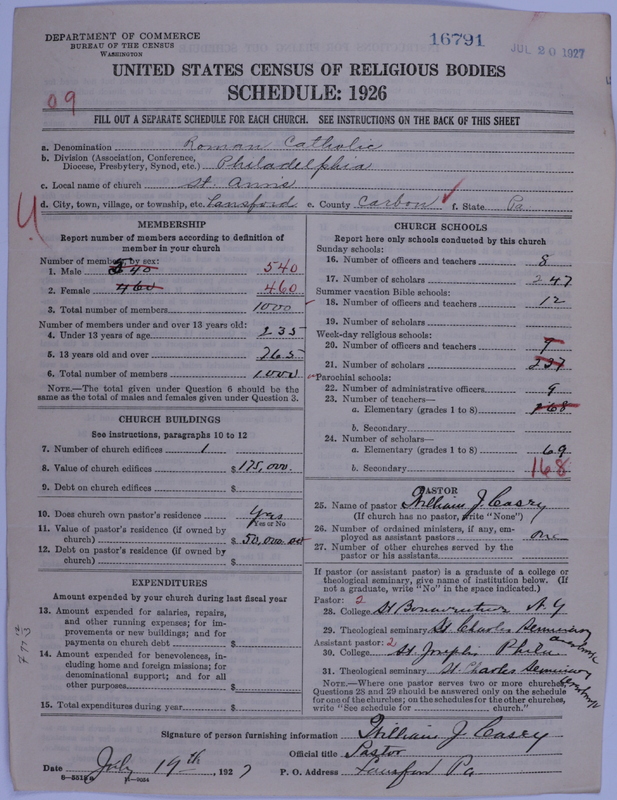 DEPARTMENT OF COMMERCE
BUREAU OF THE CENSUS
WASHINGTON
16791
JUL 20 1927
UNITED STATES CENSUS OF RELIGIOUS BODIES
SCHEDULE: 1926
09
FILL OUT A SEPARATE SCHEDULE FOR EACH CHURCH. SEE INSTRUCTIONS ON THE BACK OF THIS SHEET
a. Denomination Roman Catholic
b. Division (Association, Conference,
Diocese, Presbytery, Synod, etc.) Philadelphia
c. Local name of church St. Anns
d. City, town, village, or township, etc. Lansford e. County Carbon f. State Pa
MEMBERSHIP
Report number of members according to definition of
member in your church
Number of members by sex:
1. Male 540
2. Female 460 460
3. Total number of members 1000
Number of members under and over 13 years old:
4. Under 13 years of age 235
5. 13 years old and over 765
6. Total number of members 1000
NOTE.—The total given under Question 6 should be the
same as the total of males and females given under Question 3.
CHURCH BUILDINGS
See instructions, paragraphs 10 to 12
7. Number of church edifices 1
8. Value of church edifices $175,000.
9. Debt on church edifices $
10. Does church own pastor's residence? Yes
Yes or No
11. Value of pastor's residence (if owned by
church) $50,000.00
12. Debt on pastor's residence (if owned by
church) $
EXPENDITURES
Amount expended by your church during last fiscal year
13. Amount expended for salaries, repairs,
and other running expenses; for im-
provements or new buildings; and for
payments on church debt $
14. Amount expended for benevolences, in-
cluding home and foreign missions; for
denominational support; and for all
other purposes $
15. Total expenditures during year $
CHURCH SCHOOLS
Report here only schools conducted by this church
Sunday schools:
16. Number of officers and teachers 8
17. Number of scholars 247
Summer vacation Bible schools:
18. Number of officers and teachers 12
19. Number of scholars
Week-day religious schools:
20. Number of officers and teachers
21. Number of scholars 237
Parochial schools:
22. Number of administrative officers 9
23. Number of teachers—
a. Elementary (grades 1 to 8) 168
b. Secondary
24. Number of scholars—
a. Elementary (grades 1 to 8) 69
b. Secondary 168
PASTOR
25. Name of pastor William J. Casey
(If church has no pastor, write "None")
26. Number of ordained ministers, if any, em-
ployed as assistant pastors one
27. Number of other churches served by the
pastor or his assistants
If pastor (or assistant pastor) is a graduate of a college or
theological seminary, give name of institution below. (If
not a graduate, write "No" in the space indicated.)
Pastor: 2
28. College St Bonaventure N.Y
29. Theological seminary St Charles Seminary
Assistant pastor: 2
30. College St Josephs Phila
31. Theological seminary St Charles Seminary
NOTE.—Where one pastor serves two or more churches,
Questions 28 and 29 should be answered only on the schedule
for one of the churches; on the schedules for the other churches,
write "See schedule for church."
Signature of person furnishing information William J. Casey
Official title Pastor
Date July 19th, 1927 P. O. Address Lansford Pa